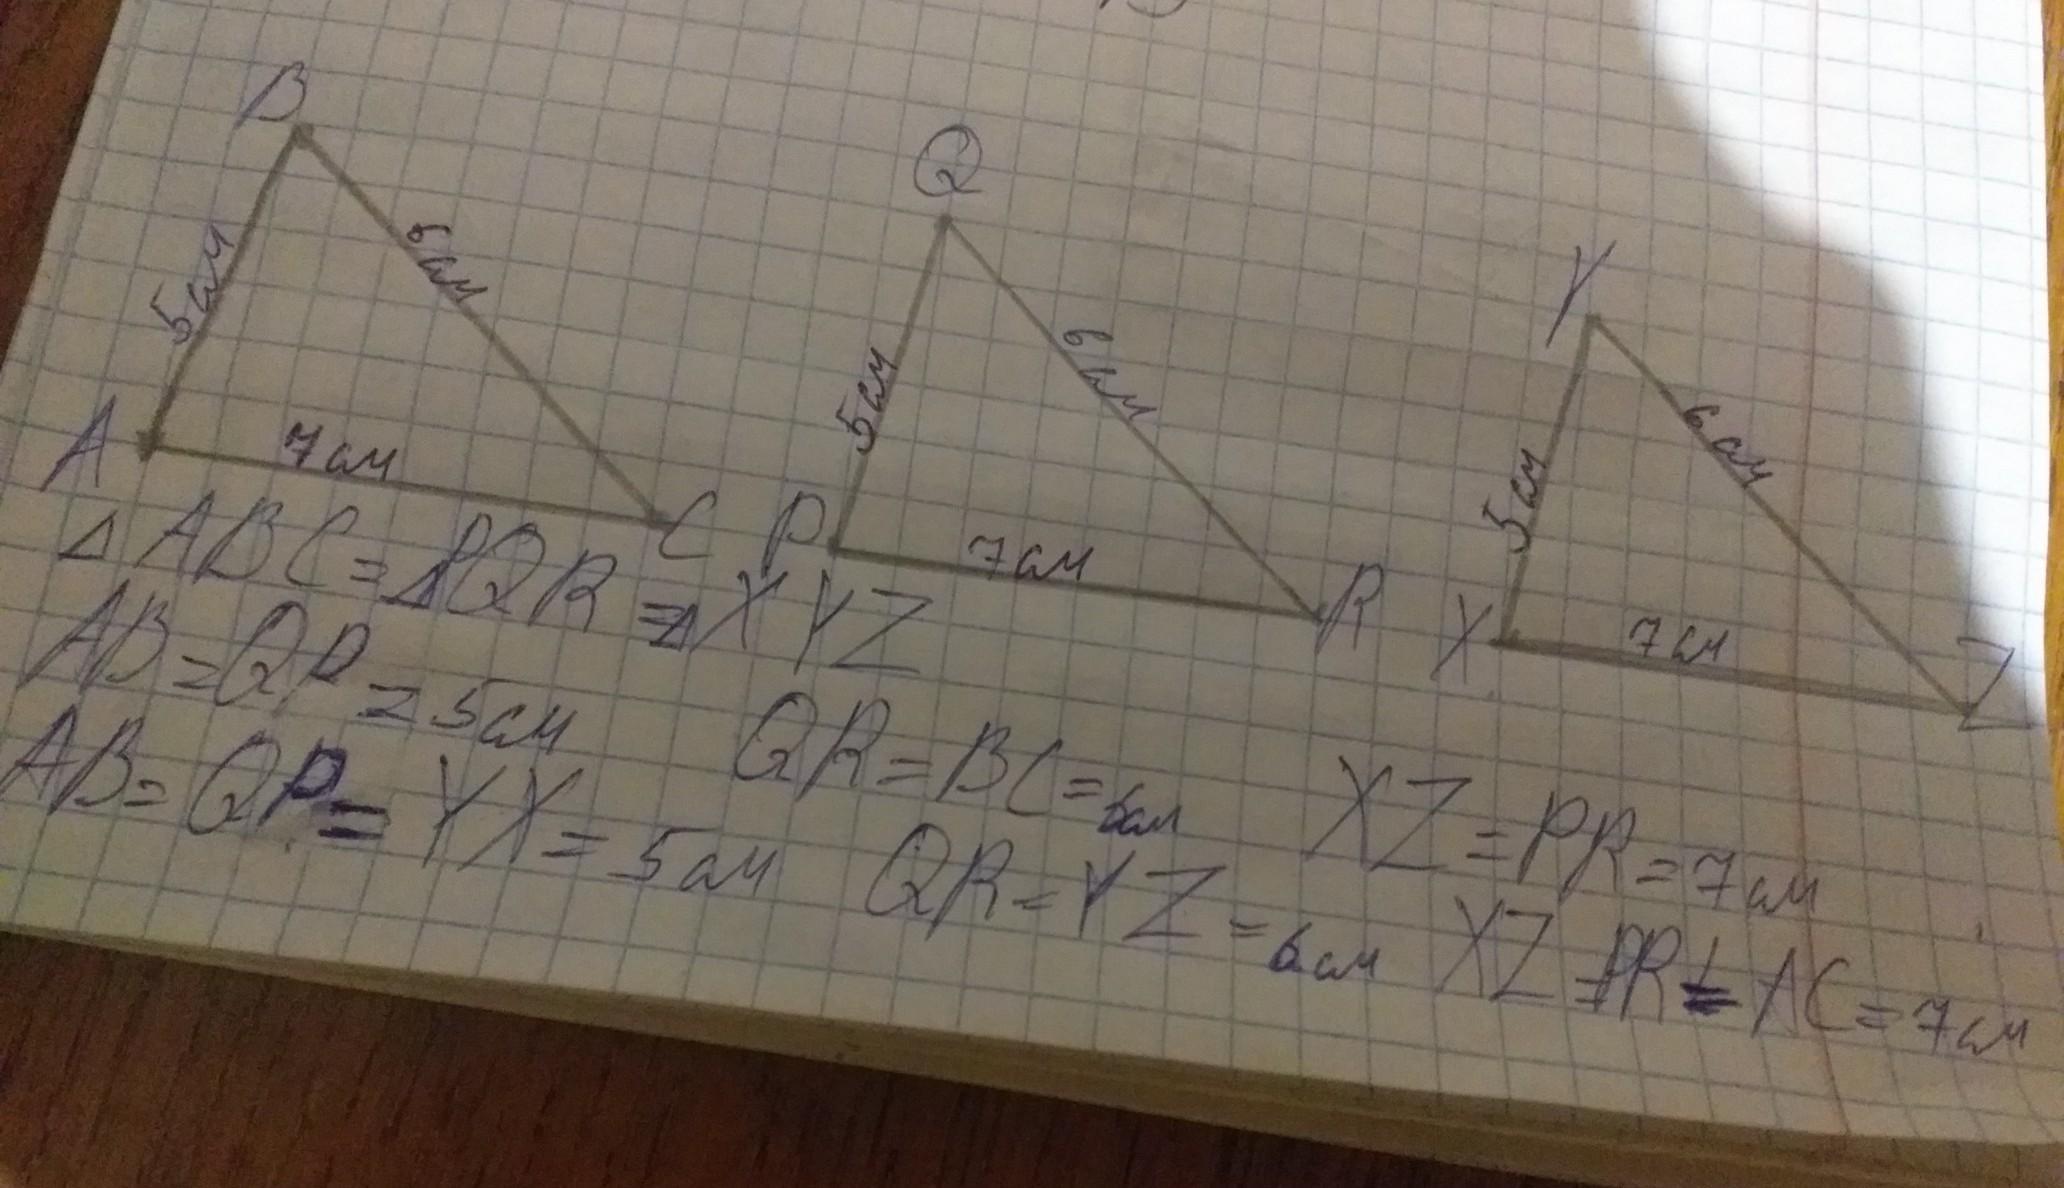 B
Q
Y
5см
8см
5см
6см
5см
6см
A
7см
C
P
7см
R
X
7см
Z
△ABC=△PQR=△XYZ
AB=QP=5см
QR=BC=6см
XZ=PR=7см
AB=QP=YX=5см
QR=YZ=6см
XZ=PR=AC=7см